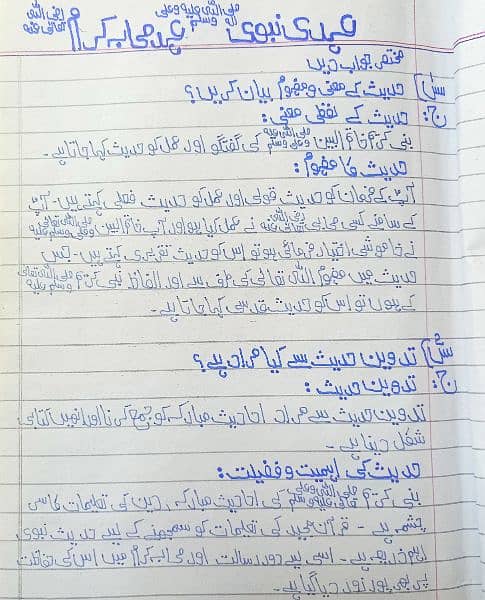 عہدی نبوی صلی اللہ علیہ وسلم عہد صحابہ کرام رضی اللہ تعالیٰ عنہ
مختصر جواب دیں
س1) حدیث کے معنی و مفہوم بیان کریں؟
ج: حدیث کے لفظی معنی:
نبی کریم خاتم النبین صلی اللہ علیہ وسلم کی گفتگو اور عمل کو حدیث کہا جاتا ہے۔
حدیث کا مفہوم:
آپؐ کے فرمان کو حدیث قولی اور عمل کو حدیث فعلی کہتے ہیں۔ آپؐ
کے سامنے کسی صحابی رضی اللہ عنہ نے عمل کیا ہو اور آپ خاتم النبین صلی اللہ تعالیٰ علیہ وسلم
نے خاموشی اختیار فرمائی ہو تو اس کو حدیث تقریری کہتے ہیں۔ جس
حدیث میں مفہوم اللہ تعالیٰ کی طرف سے اور الفاظ نبی کریم صلی اللہ تعالیٰ علیہ وسلم
کے ہوں تو اس کو حدیث قدسی کہا جاتا ہے۔
س2) تدوین حدیث سے کیا مراد ہے؟
ج: تدوین حدیث:
تدوین حدیث سے مراد احادیث مبارکہ کو جمع کرنا اور انھیں کتابی
شکل دینا ہے۔
حدیث کی اہمیت و فضیلت:
نبی کریم صلی اللہ علیہ وسلم کی احادیث مبارکہ، دین کی تعلیمات کا سر
چشمہ ہے۔ قرآن مجید کی تعلیمات کو سمجھنے کے لیے حدیث نبوی
اہم ذریعہ ہے۔ اسی لیے دور رسالت اور صحابہ کرام میں اس کی حفاظت
پر بھی پور زور دیا گیا ہے۔